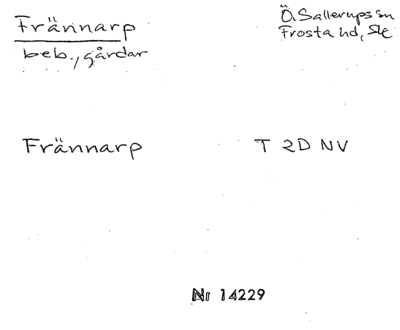 Frännarp
Ö. Sallerups sn
beb., gårdar
Frosta hd, Sk
Frännarp T 2D NV
Nr 14229